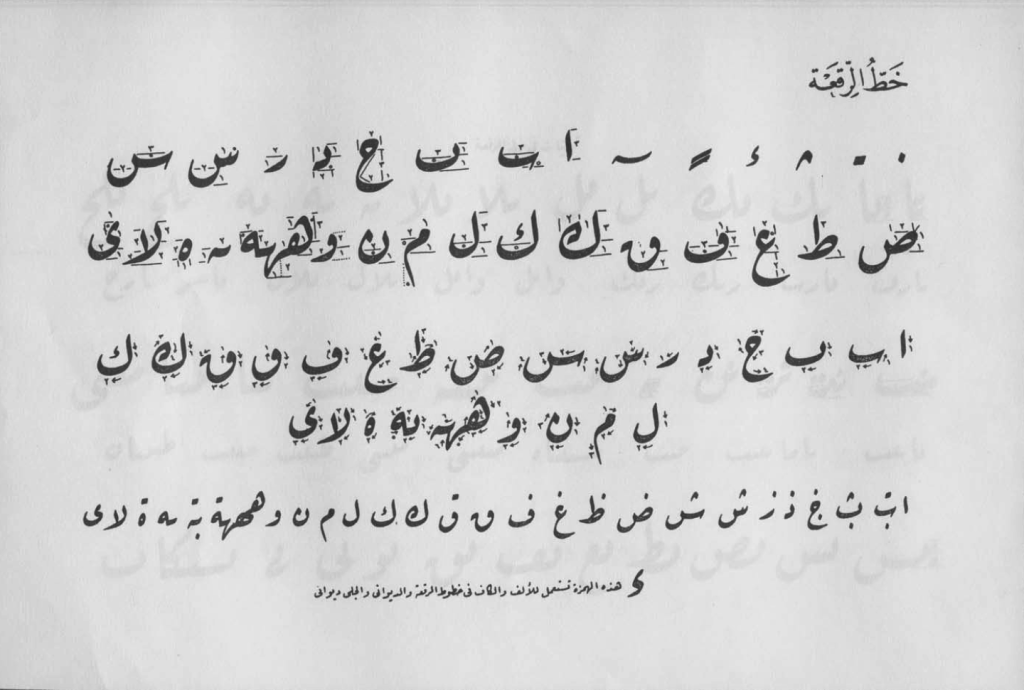 خَطُّ الرِّقعَة
ا ب ن ج د ر س س
ض ط غ ف ق ك ك ل م ن و ههههة ه لا ى
ا ب ب ج د ر س س ض ظ غ ف ق ق ك ك
ل م ن و ههه ة ة لا ى
ا ت ث خ ذ ز ش ش ض ظ غ ف ق ق ك ك ل م ن و هههة ة ه ة لا ى
ء هذه الهمزة تستعمل للألف والكاف فى خطوط الرقعة والديوانى والجلى ديوانى